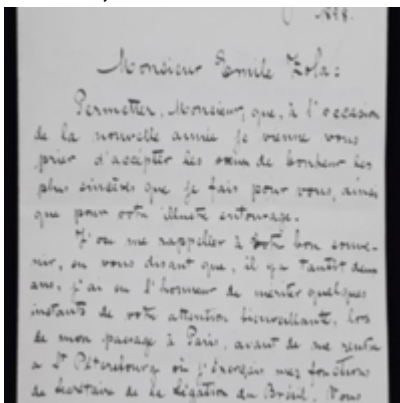 1898.
Monsieur Emile Zola:
Permettez, Monsieur, que, à l'occasion
de la nouvelle année je vienne vous
prier d'accepter les vœux de bonheur les
plus sincères que je fais pour vous, ainsi
que pour votre illustre entourage.
J'ose me rappeller à votre bon souve-
nir, en vous disant que, il y a tantôt deux
ans, j'ai eu l'honneur de meriter quelques
instants de votre attention bienveillante, lors
de mon passage à Paris, avant de me rendre
a St Pétersbourg où j'éxerçais mes fonctions
de Secrétaire de la Légation du Brésil. Vous